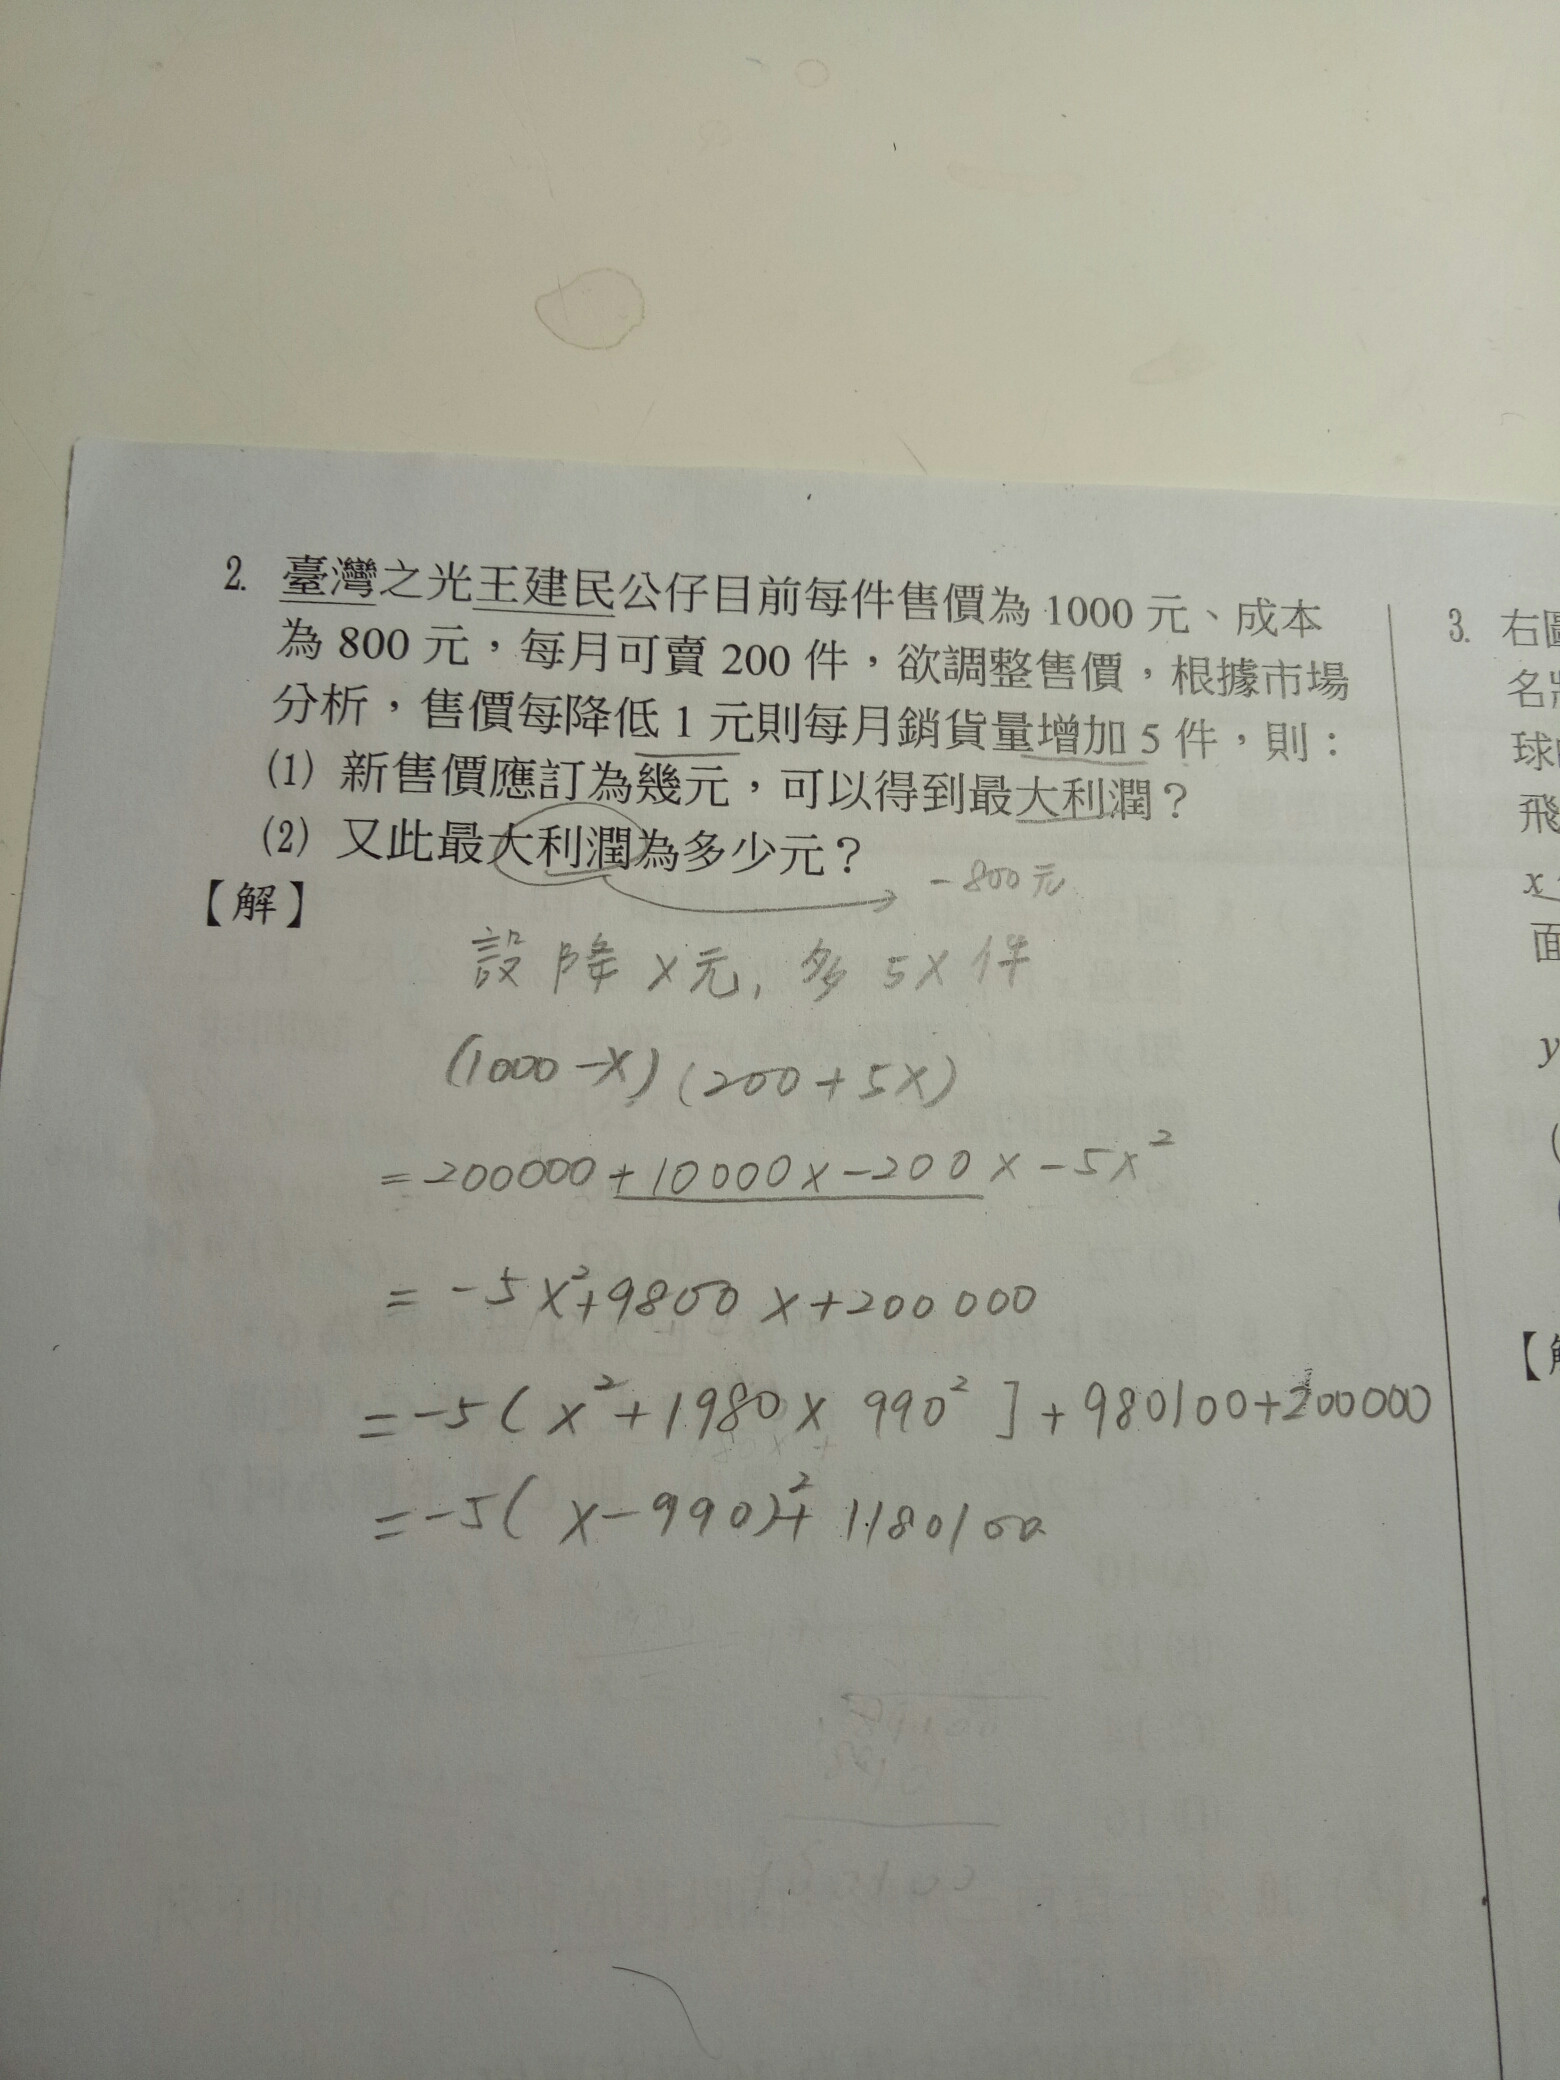 2. 臺灣之光王建民公仔目前每件售價為 1000 元、成本
為 800 元，每月可賣 200 件，欲調整售價，根據市場
分析，售價每降低 1 元則每月銷貨量增加 5 件，則：
(1) 新售價應訂為幾元，可以得到最大利潤？
(2) 又此最大利潤為多少元？
-800元
【解】
設降x元, 多5x件
(1000-x)(200+5x)
=200000+10000x-200x-5x²
=-5x²+9800x+200000
=-5(x²+1980x 990²]+980100+200000
=-5(x-990)²+1180100
3. 右
名
球
飛
x
面
y
(
【